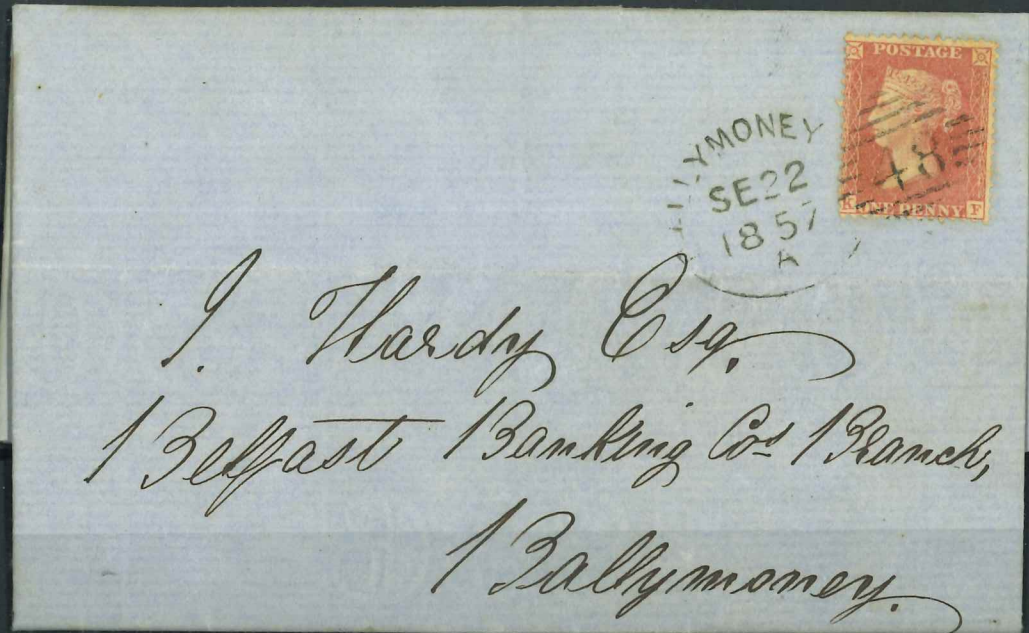 POSTAGE
48
K ONE PENNY F
LLYMONEY
SE 22
1857
A
J. Hardy Esq.
Belfast Banking Cos Branch,
Ballymoney.